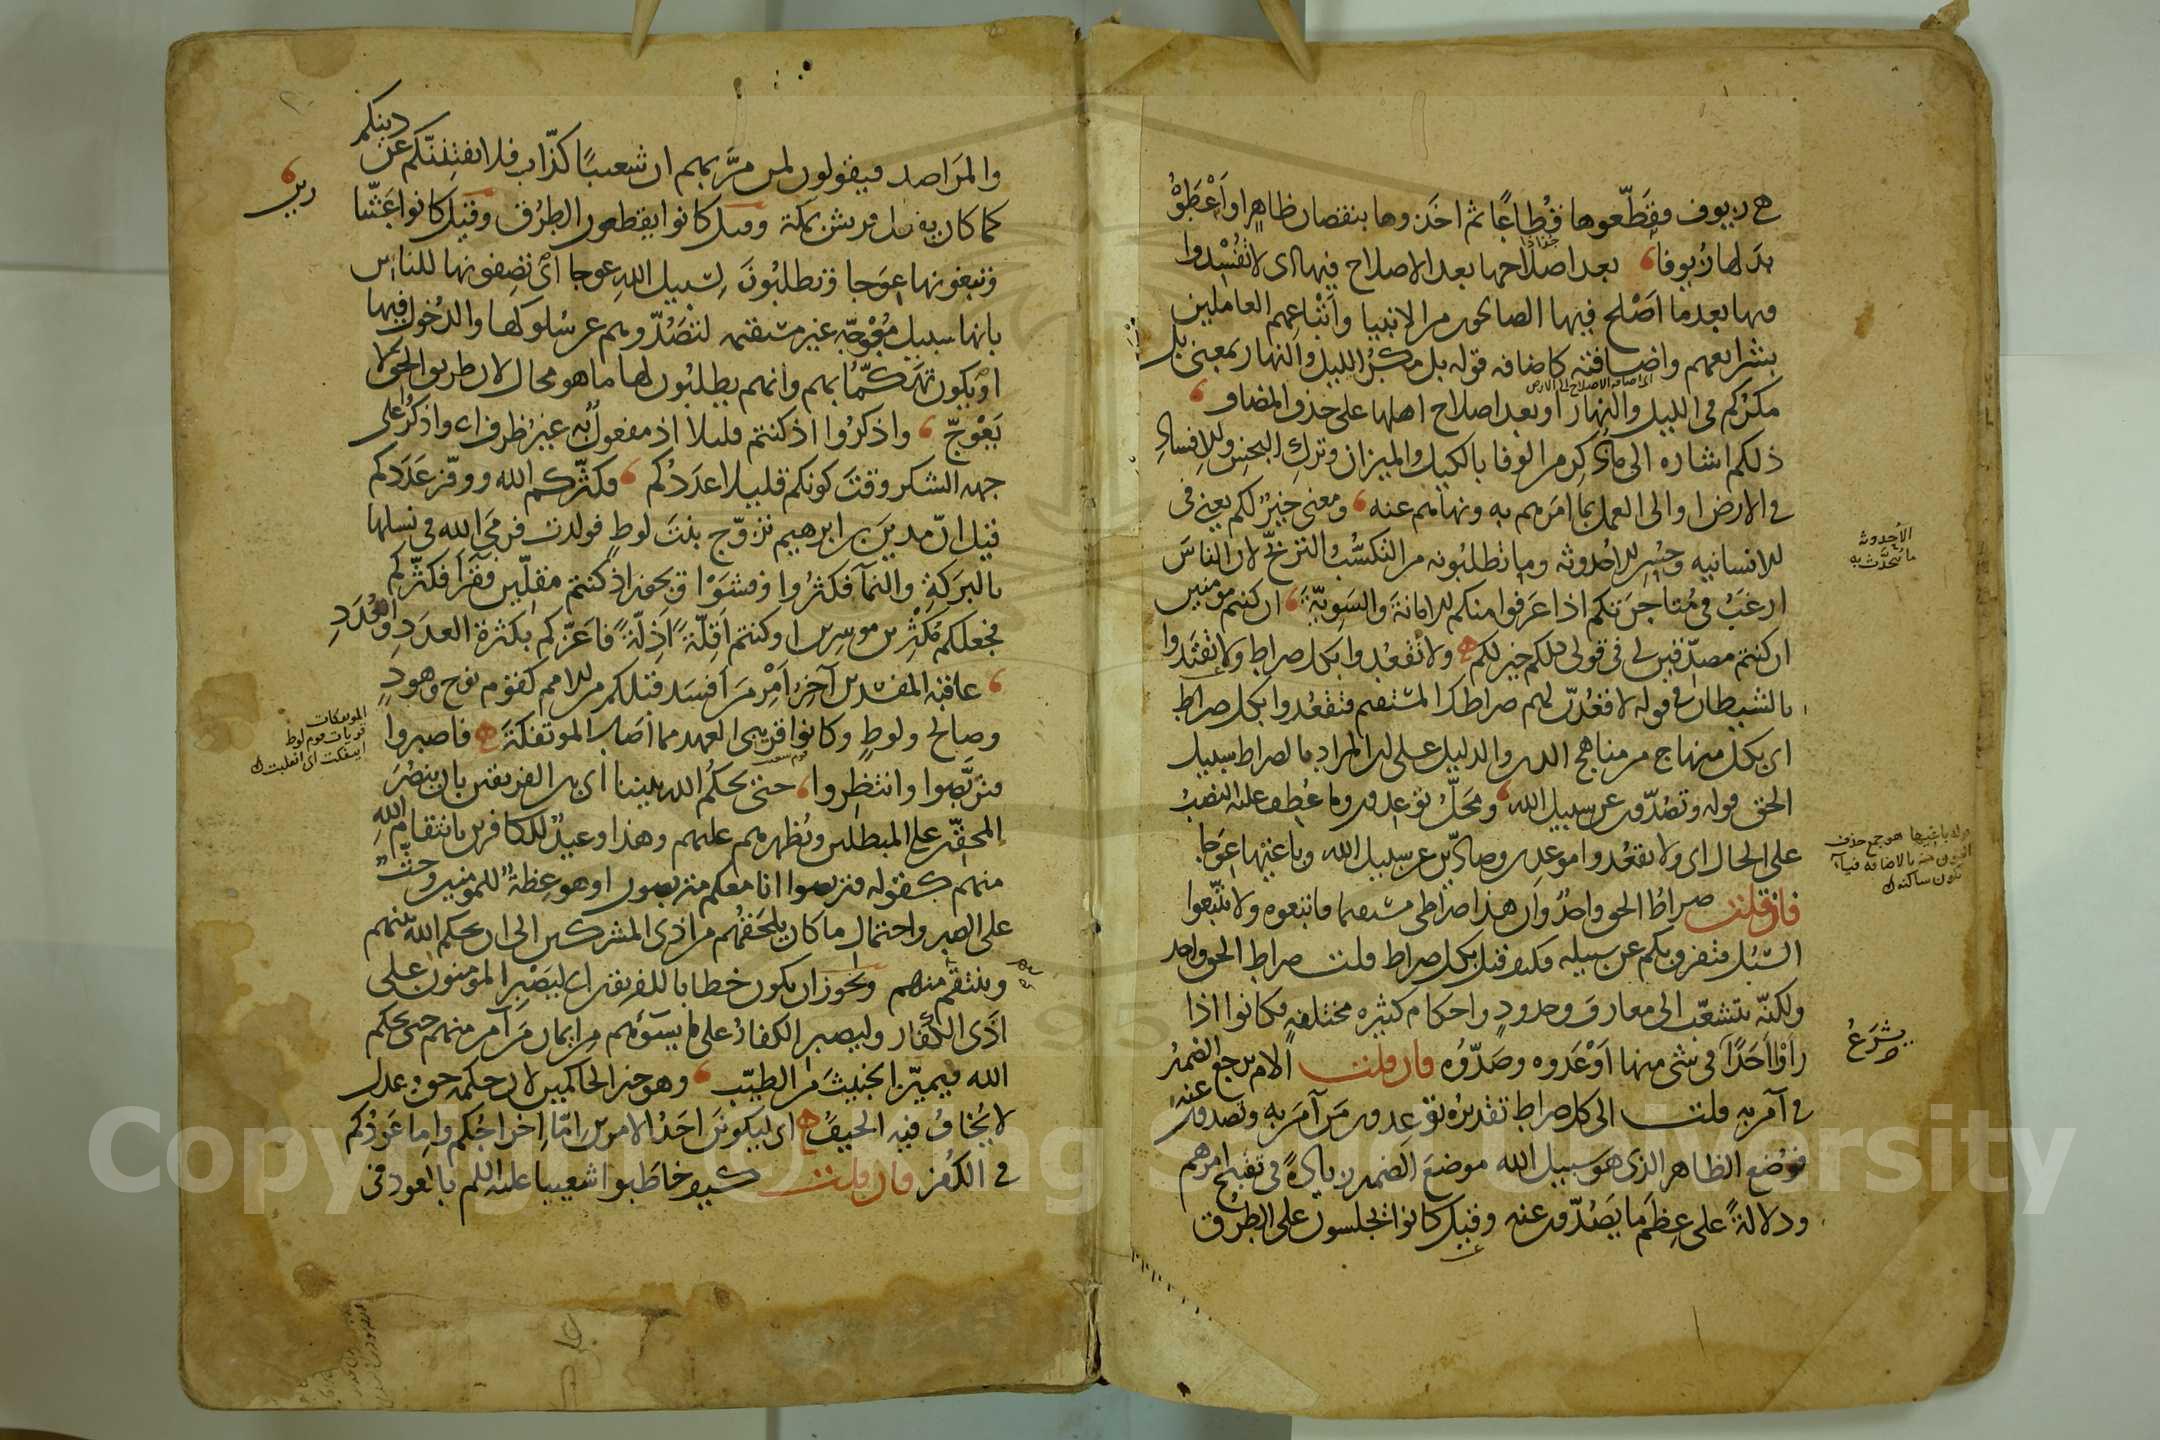 هى زيوف فقطّعوها قطاعًا ثم اخذوها بنقصان ظاهر او اَعْطَوْهُ
بدلها زُيوفا بعد اصلاحها بعد الاصلاح فيها اى لا تُفسِدوا
جُذاذًا
فيها بعد ما اَصْلح فيها الصالحون من الانبيا واَتْباعِهم العاملين
بشرايعهم واضافته كاضافه قوله بل مكرُ الليل والنهار بمعنى بل
اى اضافه الاصلاح الى الارض
مكرُكم فى الليل والنهار او بعد اصلاح اهلها على حذف المضاف
ذلكم اشاره الى ما ذُكِر من الوفا بالكيل والميزان وترك البخس والافساد
فى الارض او الى العمل بما امَرهم به ونهاهم عنه ومعنى خيرٌ لكم يعنى فى
للانسانيه وحُسنِ الاُحدوثه وما تطلبونه من التكسُّب والتربّح لان الناسَ
ارغبُ فى مُتاجَرتكم اذا عَرَفوا منكم الامانةَ والسَّوِيّةَ ان كنتم مومنين
ان كنتم مصدّقين لى فى قولى ذلكم خير لكم ولا تقعُدوا بكل صراط ولا تقتدوا
بالشيطان فى قوله لاقعُدَنّ لهم صراطك المستقيم فتقعُدوا بكل صراط
اى بكل منهاج من مناهج الدين والدليل على ان المراد بالصراط سبيل
الحق قوله وتصُدّون عن سبيل الله ومحَلُّ توعِدون وما عُطِف عليه النصبُ
على الحال اى ولا تقعُدوا موعِدين وصادّين عن سبيل الله وباغيها عوجا
فان قلت صراطُ الحق واحدٌ وان هذا صراطى مستقيما فاتبعوه ولا تتّبعوا
السّبُل فتفرق بكم عن سبيله فكيف قيل بكل صراط قلت صراط الحق واحد
ولكنّه يتشعّب الى معارفَ وحدودٍ واحكام كثيره مختلفةٍ فكانوا اذا
راَوْا احَدًا فى شى منها اَوْعَدوه وصَدّوه فان قلت الام يرجع الضميرُ
فى آمن به قلت الى كل صراط تقديرُه توعِدون مَن آمَن به وتصدون عنه
فوُضع الظاهر الذى هو سبيل الله موضعَ الضمير زيادةً فى تقبيح امرهم
ودلالةً على عِظَم ما يَصُدّون عنه وقيل كانوا يجلسون على الطرُق
الأُحدوثه
ما يُتحدَّث به
قوله باغيها هو جمع حذف
النون منه بالاضافه فياؤه
تكون ساكنه
يشرَعُ
والمَراصد فيقولون لمن مرَّ بهم ان شعيبًا كذّاب فلا يفتِنَنّكم عن دينكم
كما كان يفعل قريش بمكة وقيل كانوا يقطعون الطرُق وقيل كانوا عَشّا
رين
وتبغونها عِوَجا وتطلبُونَ لسبيل الله عوجا اى تصِفونها للناس
بانها سبيل مُعْوجّه غير مستقيمه لتصُدّوهم عن سُلوكها والدُخول فيها
او يكون تهكّمًا بهم وانهم يطلبُون لها ما هو محال لان طريق الحق لا
يَعْوجّ واذكرُوا اذ كنتم قليلا اذ مفعولٌ به غيرُ ظرف اى واذكرُوا على
جهه الشكر وقتَ كونكم قليلا عدَدُكم فكثّركم الله ووفّر عَدَدكم
قيل انّ مدين بن ابرهيم تزوّج بنتَ لوطٍ فولدت فرمَى الله فى نسلها
بالبَركةِ والنمآ فكثُروا وفشَوْا ويجوز اذ كنتم مقِلّين فُقَرآ فكثّركم
فجعلكم مُكْثِرين موسرين او كنتم اَقِلّةً اَذِلّةً فاَعَزّكم بكثرة العدَد والعُدَدِ
عاقبه المفسدين آخِرُ اَمْرِ مَن اَفسَد قبلكم من الامم كقوم نوح وهودٍ
وصالح ولوطٍ وكانوا قريبى العهد مما اَصاب الموتفكةَ فاصبروا
الموتفكات
قريات قوم لوط
ايتفكت اى انقلبت
فتربَّصوا وانتظِروا حتى يحكُم الله بيننا اى بين الفريقين بان ينصُرَ
قوم شعيب
المحِقّين على المبطلين ويُظهرهم عليهم وهذا وعيدٌ للكافرين بانتقام اللهِ
منهم كقوله فتربصوا انا معكم متربصون او هو عِظةٌ للمومنين وحثٌّ
على الصبر واحتمال ما كان يلحَقُهم من اذى المشركين الى ان يحكم الله بينهم
وينتقم منهم ويجوز ان يكون خطابا للفريقين اى ليَصْبرِ المومنون على
اذَى الكُفّار وليصبر الكفارُ على ما يسوءهم من ايمان مَن آمن منهم حتى يحكم
الله فيميّز الخبيثَ من الطيّب وهو خير الحاكمين لان حكمه حق وعدل
لا يُخافُ فيه الحيفُ اى ليكونَنّ احَدُ الامرين اِمّا اِخراجُكم واِما عَوْدُكم
فى الكُفر فان قلت كيف خاطَبوا شعيبا عليه السلم بالعود فى
Copyright © King Saud University